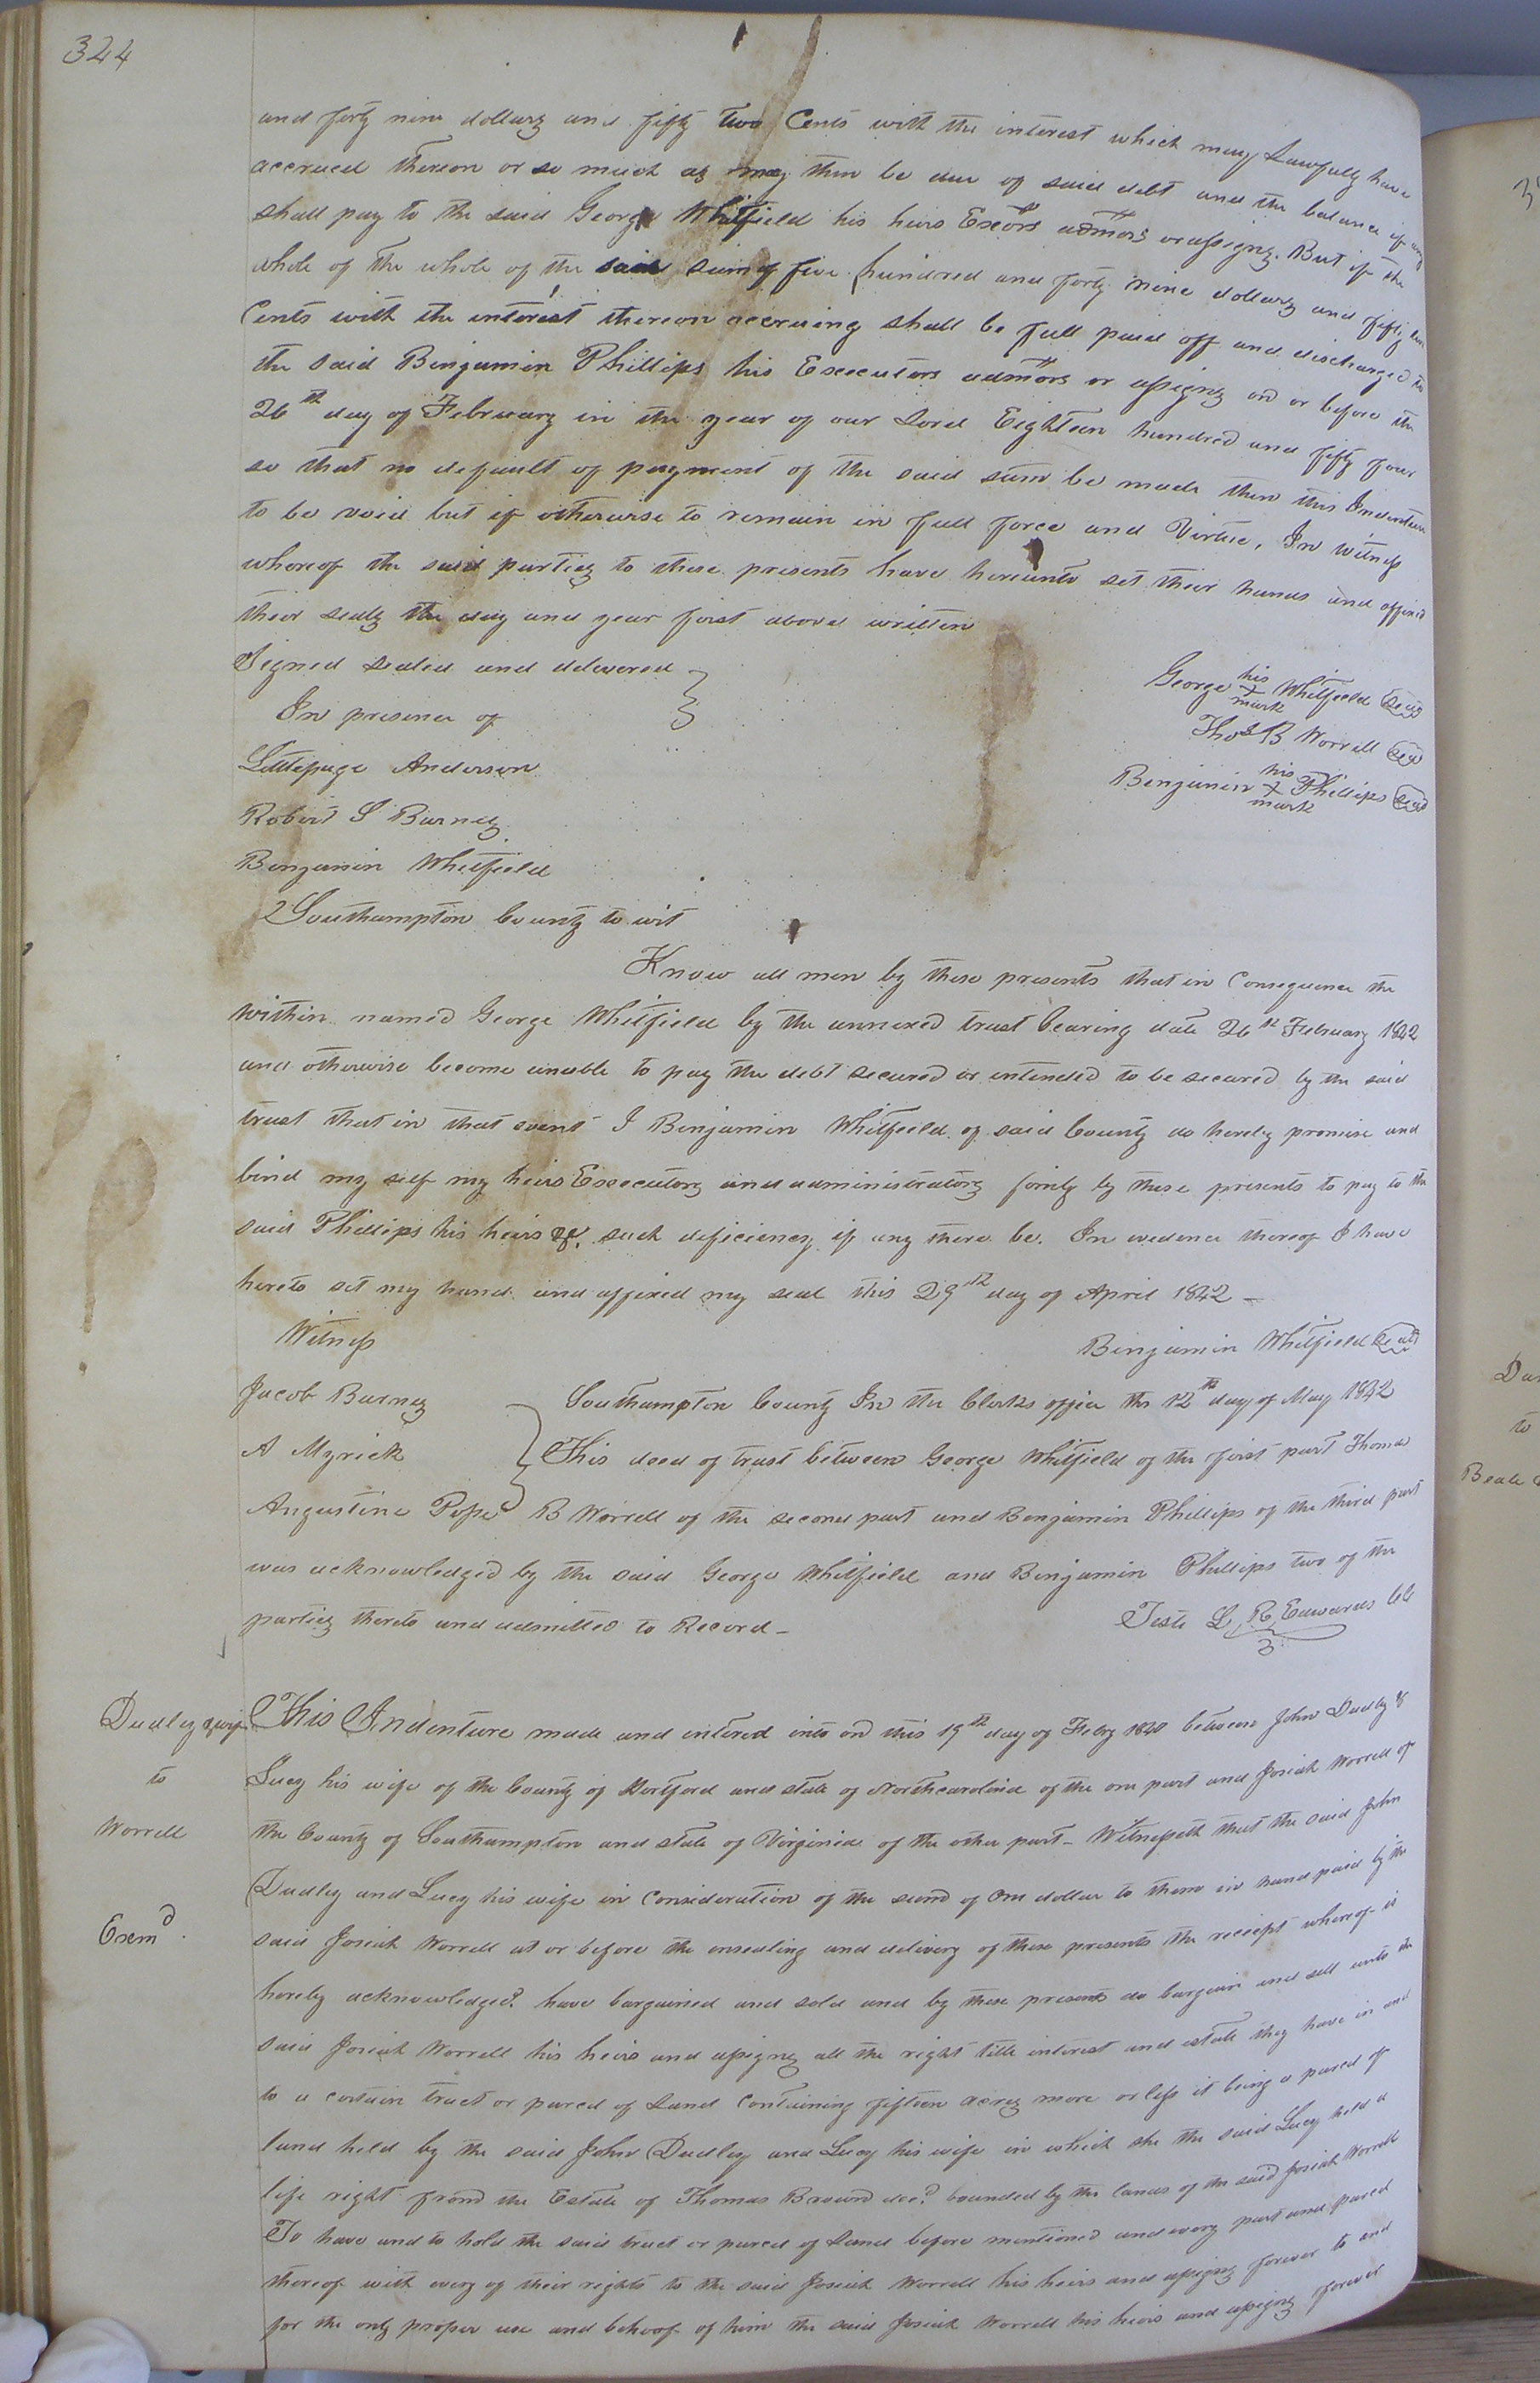 324
and forty nine dollars and fifty two Cents with the interest which may Lawfully have
accrued thereon or so much as may then be due of said debt and the balance if any
shall pay to the said George Whitfield his heirs Exors admors or assigns. But if the
whole of the whole of the said sum of five hundred and forty nine dollars and fifty two
Cents with the interest thereon accruing shall be full paid off and discharged to
the said Benjamin Phillips his Executors admors or assigns on or before the
26th day of February in the year of our Lord Eighteen hundred and fifty four
so that no default of payment of the said sum be made then this Indenture
to be void but if otherwise to remain in full force and Virtue, In witness
whereof the said parties to these presents have hereunto set their hands and affixed
their seals the day and year first above written
Signed sealed and delivered
In presence of
George his + mark Whitfield seal
Thos B Worrell seal
Benjamin his + mark Phillips seal
Littlepage Anderson
Robert S Barnes
Benjamin Whitfield
Southampton County to wit
Know all men by these presents that in Consequence the
within named George Whitfield by the annexed trust bearing date 26th February 1842
and otherwise become unable to pay the debt secured or intended to be secured by the said
trust that in that event I Benjamin Whitfield of said County do hereby promise and
bind my self my heirs Executors and administrators firmly by these presents to pay to the
said Phillips his heirs &c. such deficiency if any there be. In evidence thereof I have
hereto set my hand and affixed my seal this 29th day of April 1842 -
Witness
Benjamin Whitfield seal
Jacob Barnes
A Myrick
Augustine Pope
Southampton County In the Clerks office the 12th day of May 1842
This deed of trust between George Whitfield of the first part Thomas
B Worrell of the second part and Benjamin Phillips of the third part
was acknowledged by the said George Whitfield and Benjamin Phillips two of the
parties thereto and admitted to Record -
Teste L R Edwards CC
Dudley & wife
to
Worrell
Exemd.
This Indenture made and entered into on this 19th day of Feby 1840 between John Dudley &
Lucy his wife of the County of Hertford and state of Northcarolina of the one part and Josiah Worrell of
the County of Southampton and state of Virginia of the other part - Witnesseth that the said John
Dudley and Lucy his wife in Consideration of the sum of One dollar to them in hand paid by the
said Josiah Worrell at or before the ensealing and delivery of these presents the receipt whereof is
hereby acknowledged. have bargained and sold and by these presents do bargain and sell unto the
said Josiah Worrell his heirs and assigns all the right title interest and estate they have in and
to a certain tract or parcel of Land Containing fifteen acres more or less it being a parcel of
land held by the said John Dudley and Lucy his wife in which she the said Lucy held a
life right from the Estate of Thomas Brown decd. bounded by the lands of the said Josiah Worrell
To have and to hold the said tract or parcel of Land before mentioned and every part and parcel
thereof with every of their rights to the said Josiah Worrell his heirs and assigns forever to and
for the only proper use and behoof of him the said Josiah Worrell his heirs and assigns forever
to